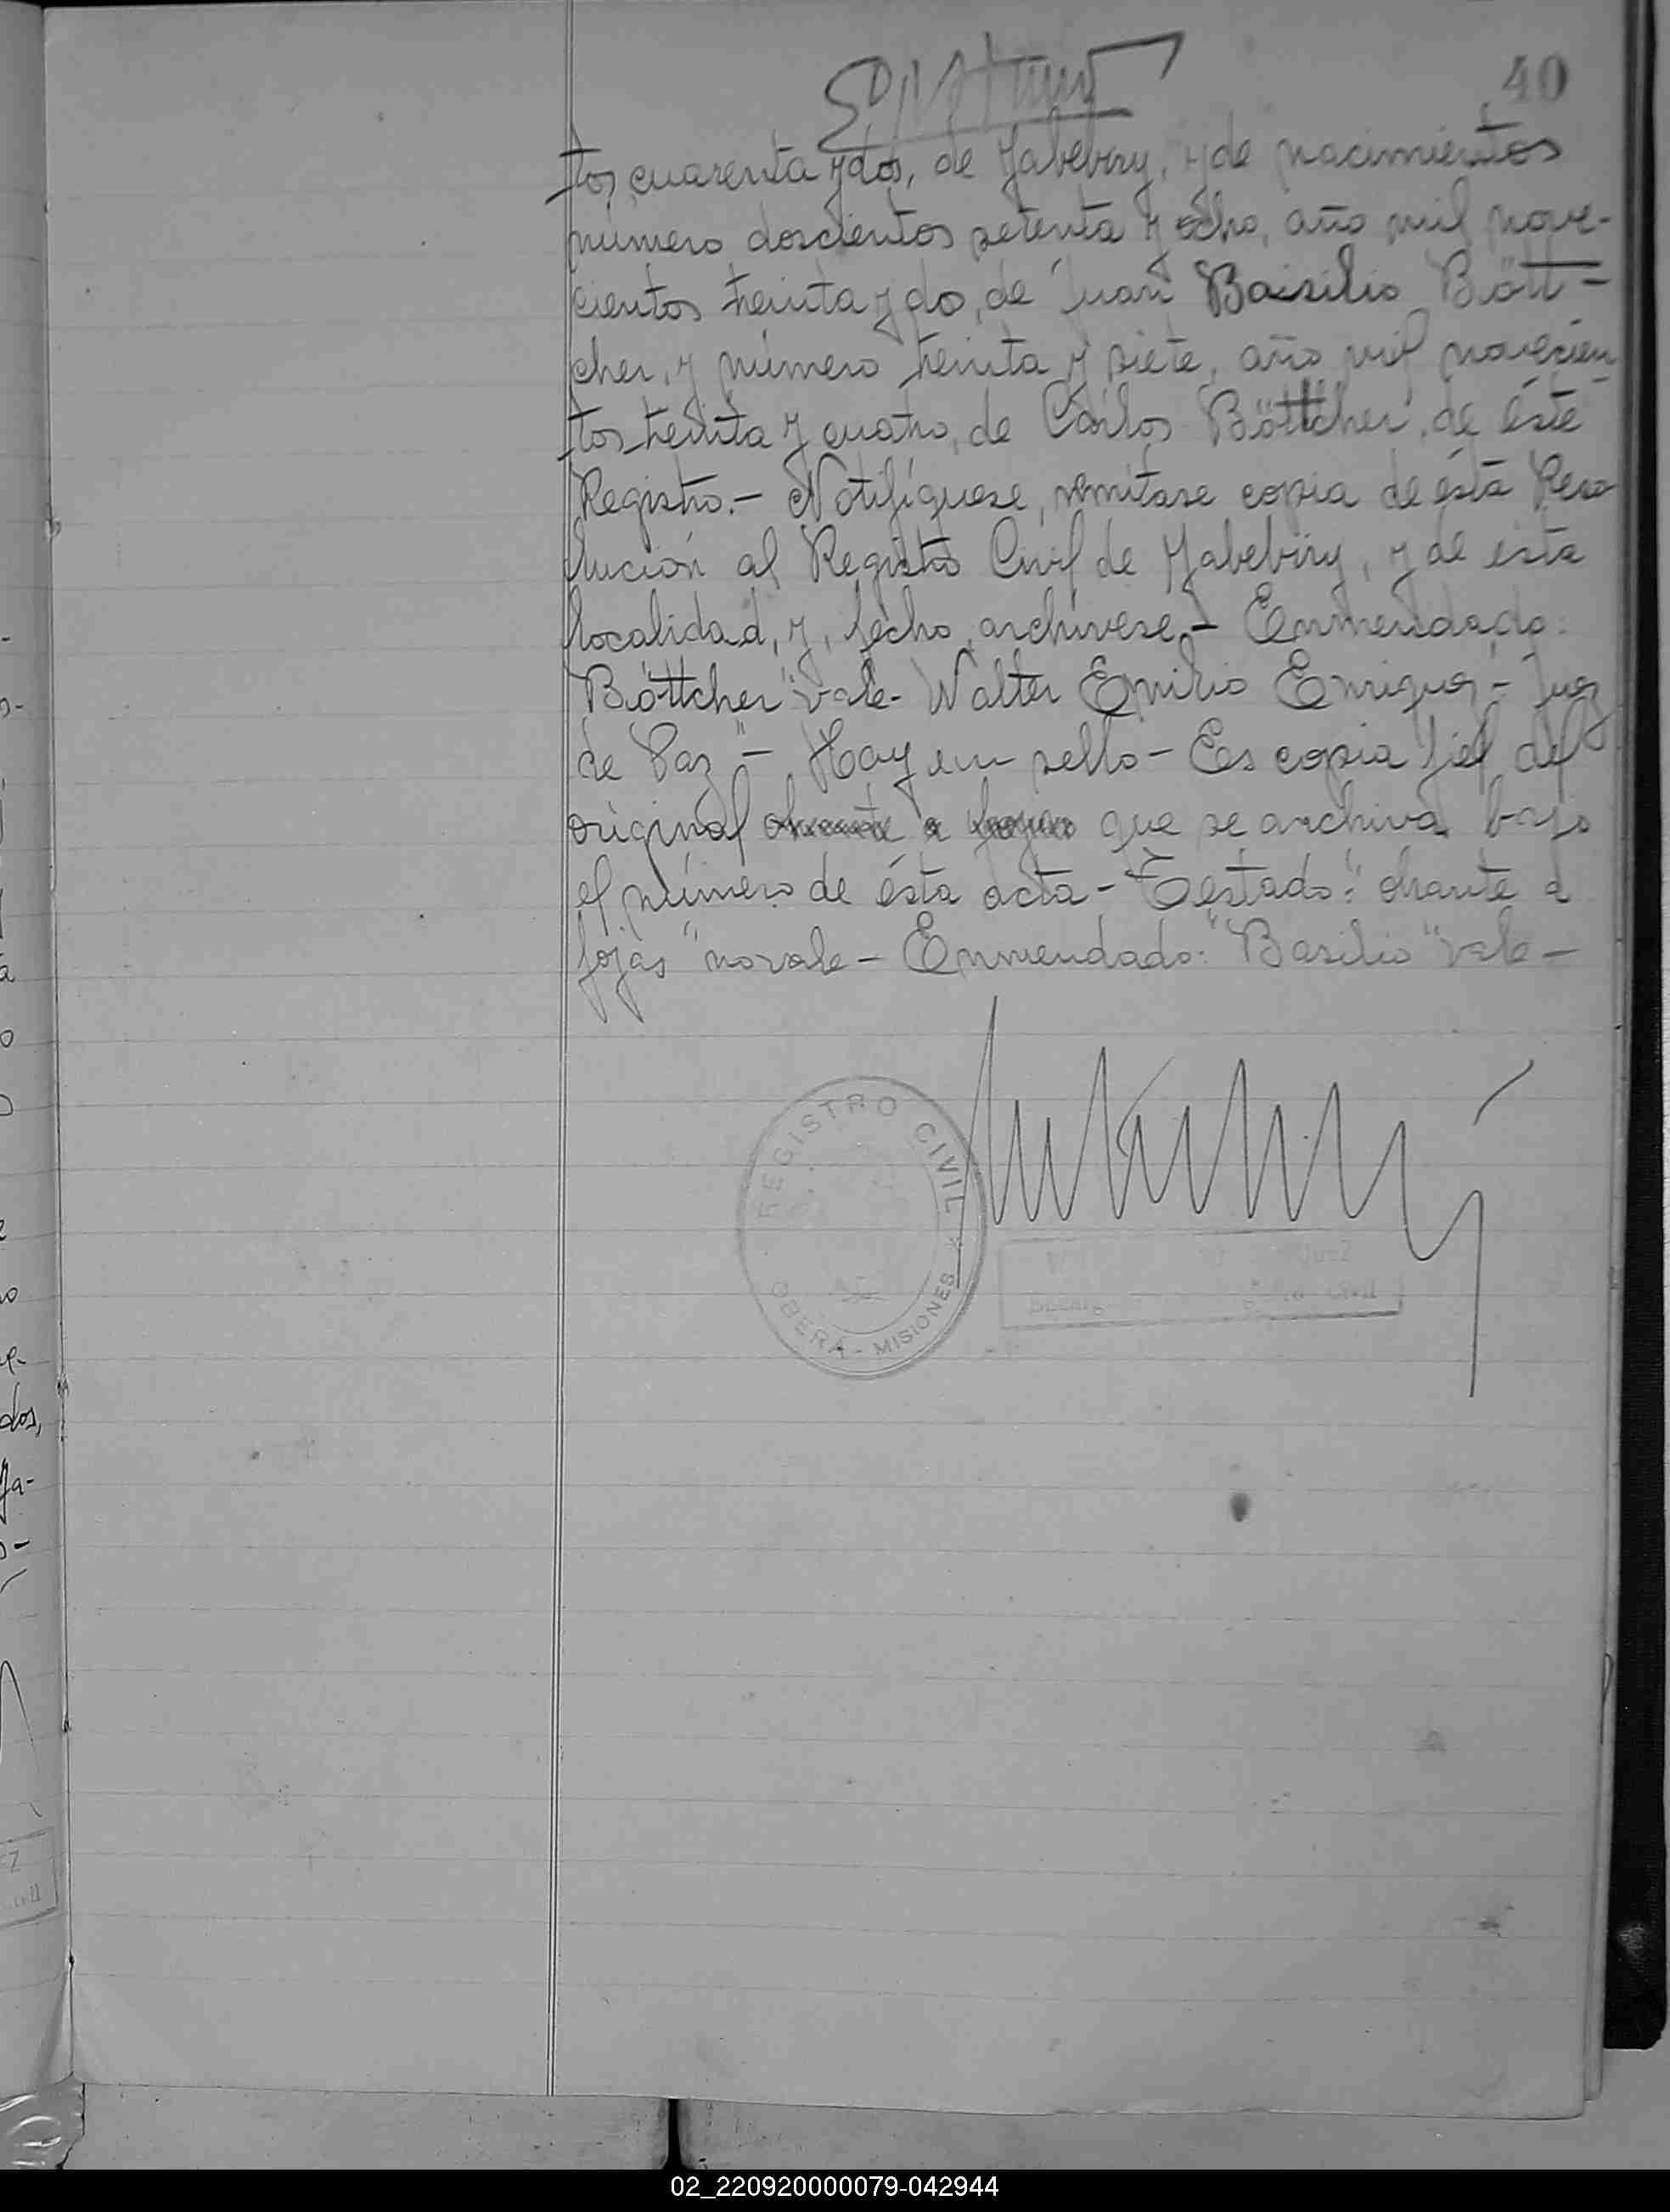 40
tos cuarenta y dos, de Yabebiry, y de nacimientos
número doscientos setenta y ocho, año mil nove-
cientos treinta y do, de Juan Basilio Bött-
cher, y número treinta y siete, año mil novecien
tos treinta y cuatro, de Carlos Böttcher, de éste
Registro.- Notifíquese, remítase copia de ésta Reso
lución al Registro Civil de Yabebiry, y de esta
localidad, y, fecho, archívese.- Enmendado:
Böttcher" vale- Walter Emilio Enriquez - Juez
de Paz"- Hay un sello- Es copia fiel del
original obrante a fojas que se archiva bajo
el número de ésta acta- Testado:" obrante a
fojas "no vale- Enmendado: "Basilio" vale-
REGISTRO CIVIL
OBERÁ - MISIONES
02_220920000079-042944